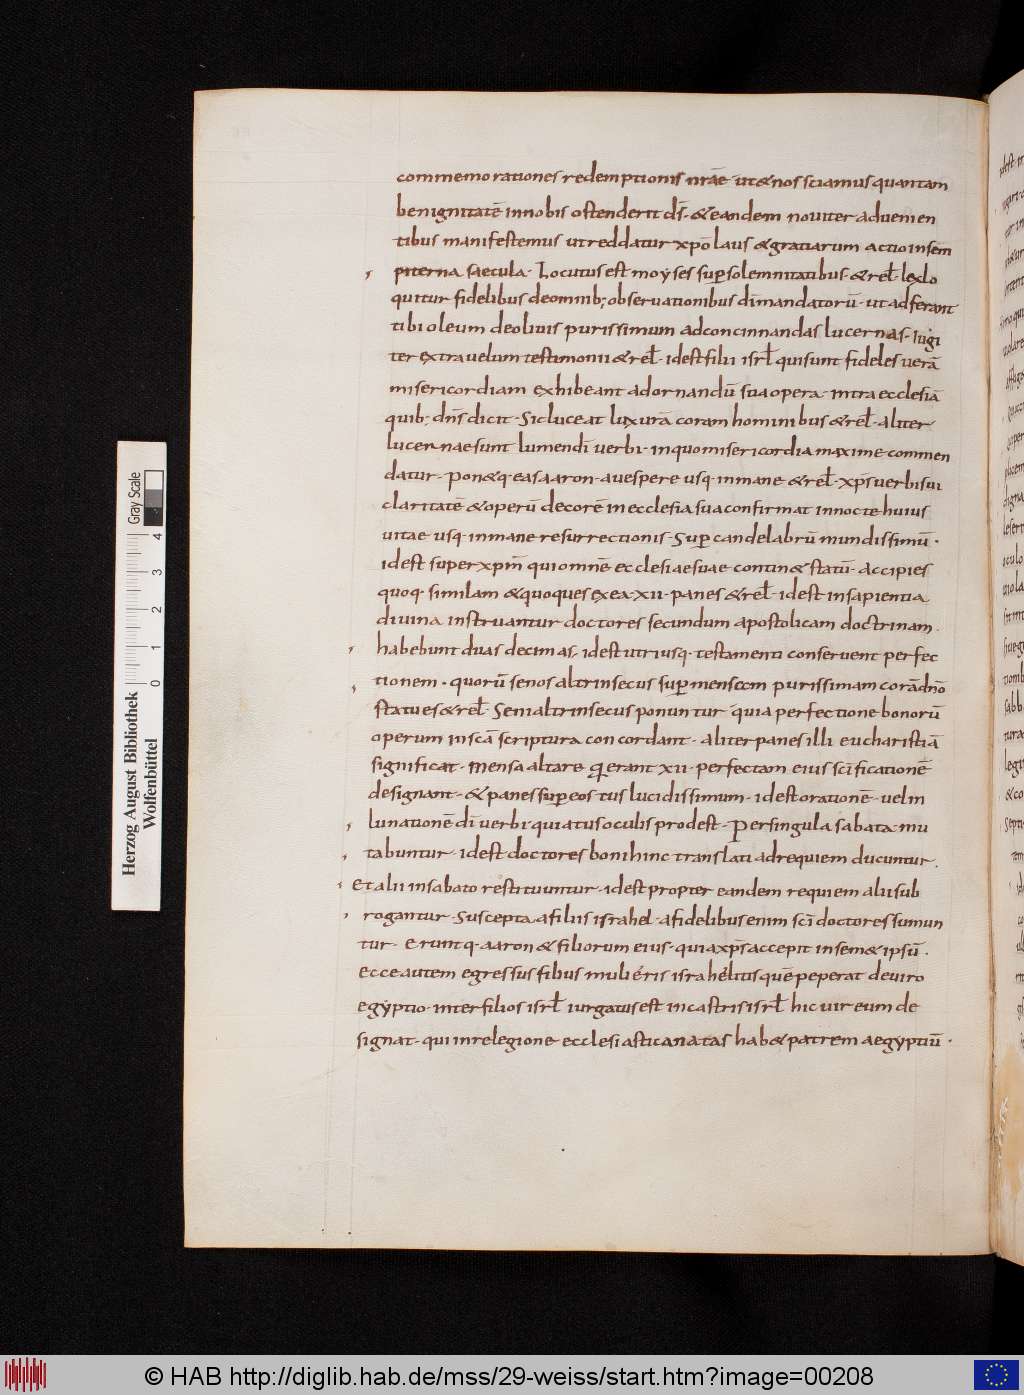 commemorationes redemptionis nr̄ae ut & nos sciamus quantam
benignitatē in nobis ostenderit d̄s · & eandem noviter advenien
tibus manifestemus ut reddatur xp̄o laus & gratiarum actio in sem
piterna saecula · Locutus est moyses sup̄ solemnitatibus · & rel̄ · Lex lo
quitur fidelibus de omnib; observationibus dī mandatorū · ut adferant
tibi oleum de olivis purissimum ad concinnandas lucernas · iugi
ter extra velum testimonii & rel̄ · id est filii isrl̄ qui sunt fideles verā
misericordiam exhibeant ad ornandū sua opera · intra ecclesiā
quib; dn̄s dicit · Sic luceat lux v̄ra coram hominibus & rel̄ · aliter
lucernae sunt lumen dī verbi · in quo misericordia maxime commen
datur · Pon&q· eas aaron · a vespere usq· in mane · & rel̄ · xp̄s verbi sui
claritatē & operū decorē in ecclesia sua confirmat in nocte huius
vitae · usq· in mane resurrectionis · Sup̄ candelabrū mundissimū ·
id est super xpm̄ qui omnē ecclesiae suae contin& statū · Accipies
quoq· similam & quoques ex ea · xii · panes & rel̄ · id est in sapientia
divina instruantur doctores secundum apostolicam doctrinam ·
habebunt duas decimas · id est utriusq· testamenti conservent perfec
tionem · quorū senos altrinsecus sup̄ mensam purissimam corā dn̄o
statues & rel̄ · Seni altrinsecus ponuntur · quia perfectione bonorū
operum in scā scriptura concordant · aliter panes illi eucharistiā
significat · mensa altare · q̄ erant xii · perfectam eius scīficationē
designant · & panes sup̄ eos tus lucidissimum · id est orationē · vel in
lunationē dī verbi · quia tus oculis prodest · Per singula sabata mu
tabuntur · id est doctores boni hinc translati ad requiem ducuntur ·
Et alii in sabato restituuntur · id est propter eandem requiem alii sub
rogantur · Suscepta a filiis israhel · a fidelibus enim scī doctores sumun
tur · Eruntq· aaron & filiorum eius · quia xp̄s accepit in sem& ipsū ·
Ecce autem egressus filius mulieris israhelitis quē peperat de viro
egyptio · inter filios isrl̄ iurgatus est in castris isrl̄ hic vir eum de
signat · qui in relegione ecclesiastica natas hab& patrem aegyptiū ·
Herzog August Bibliothek
Wolfenbüttel
0 1 2 3 4
Gray Scale
© HAB http://diglib.hab.de/mss/29-weiss/start.htm?image=00208